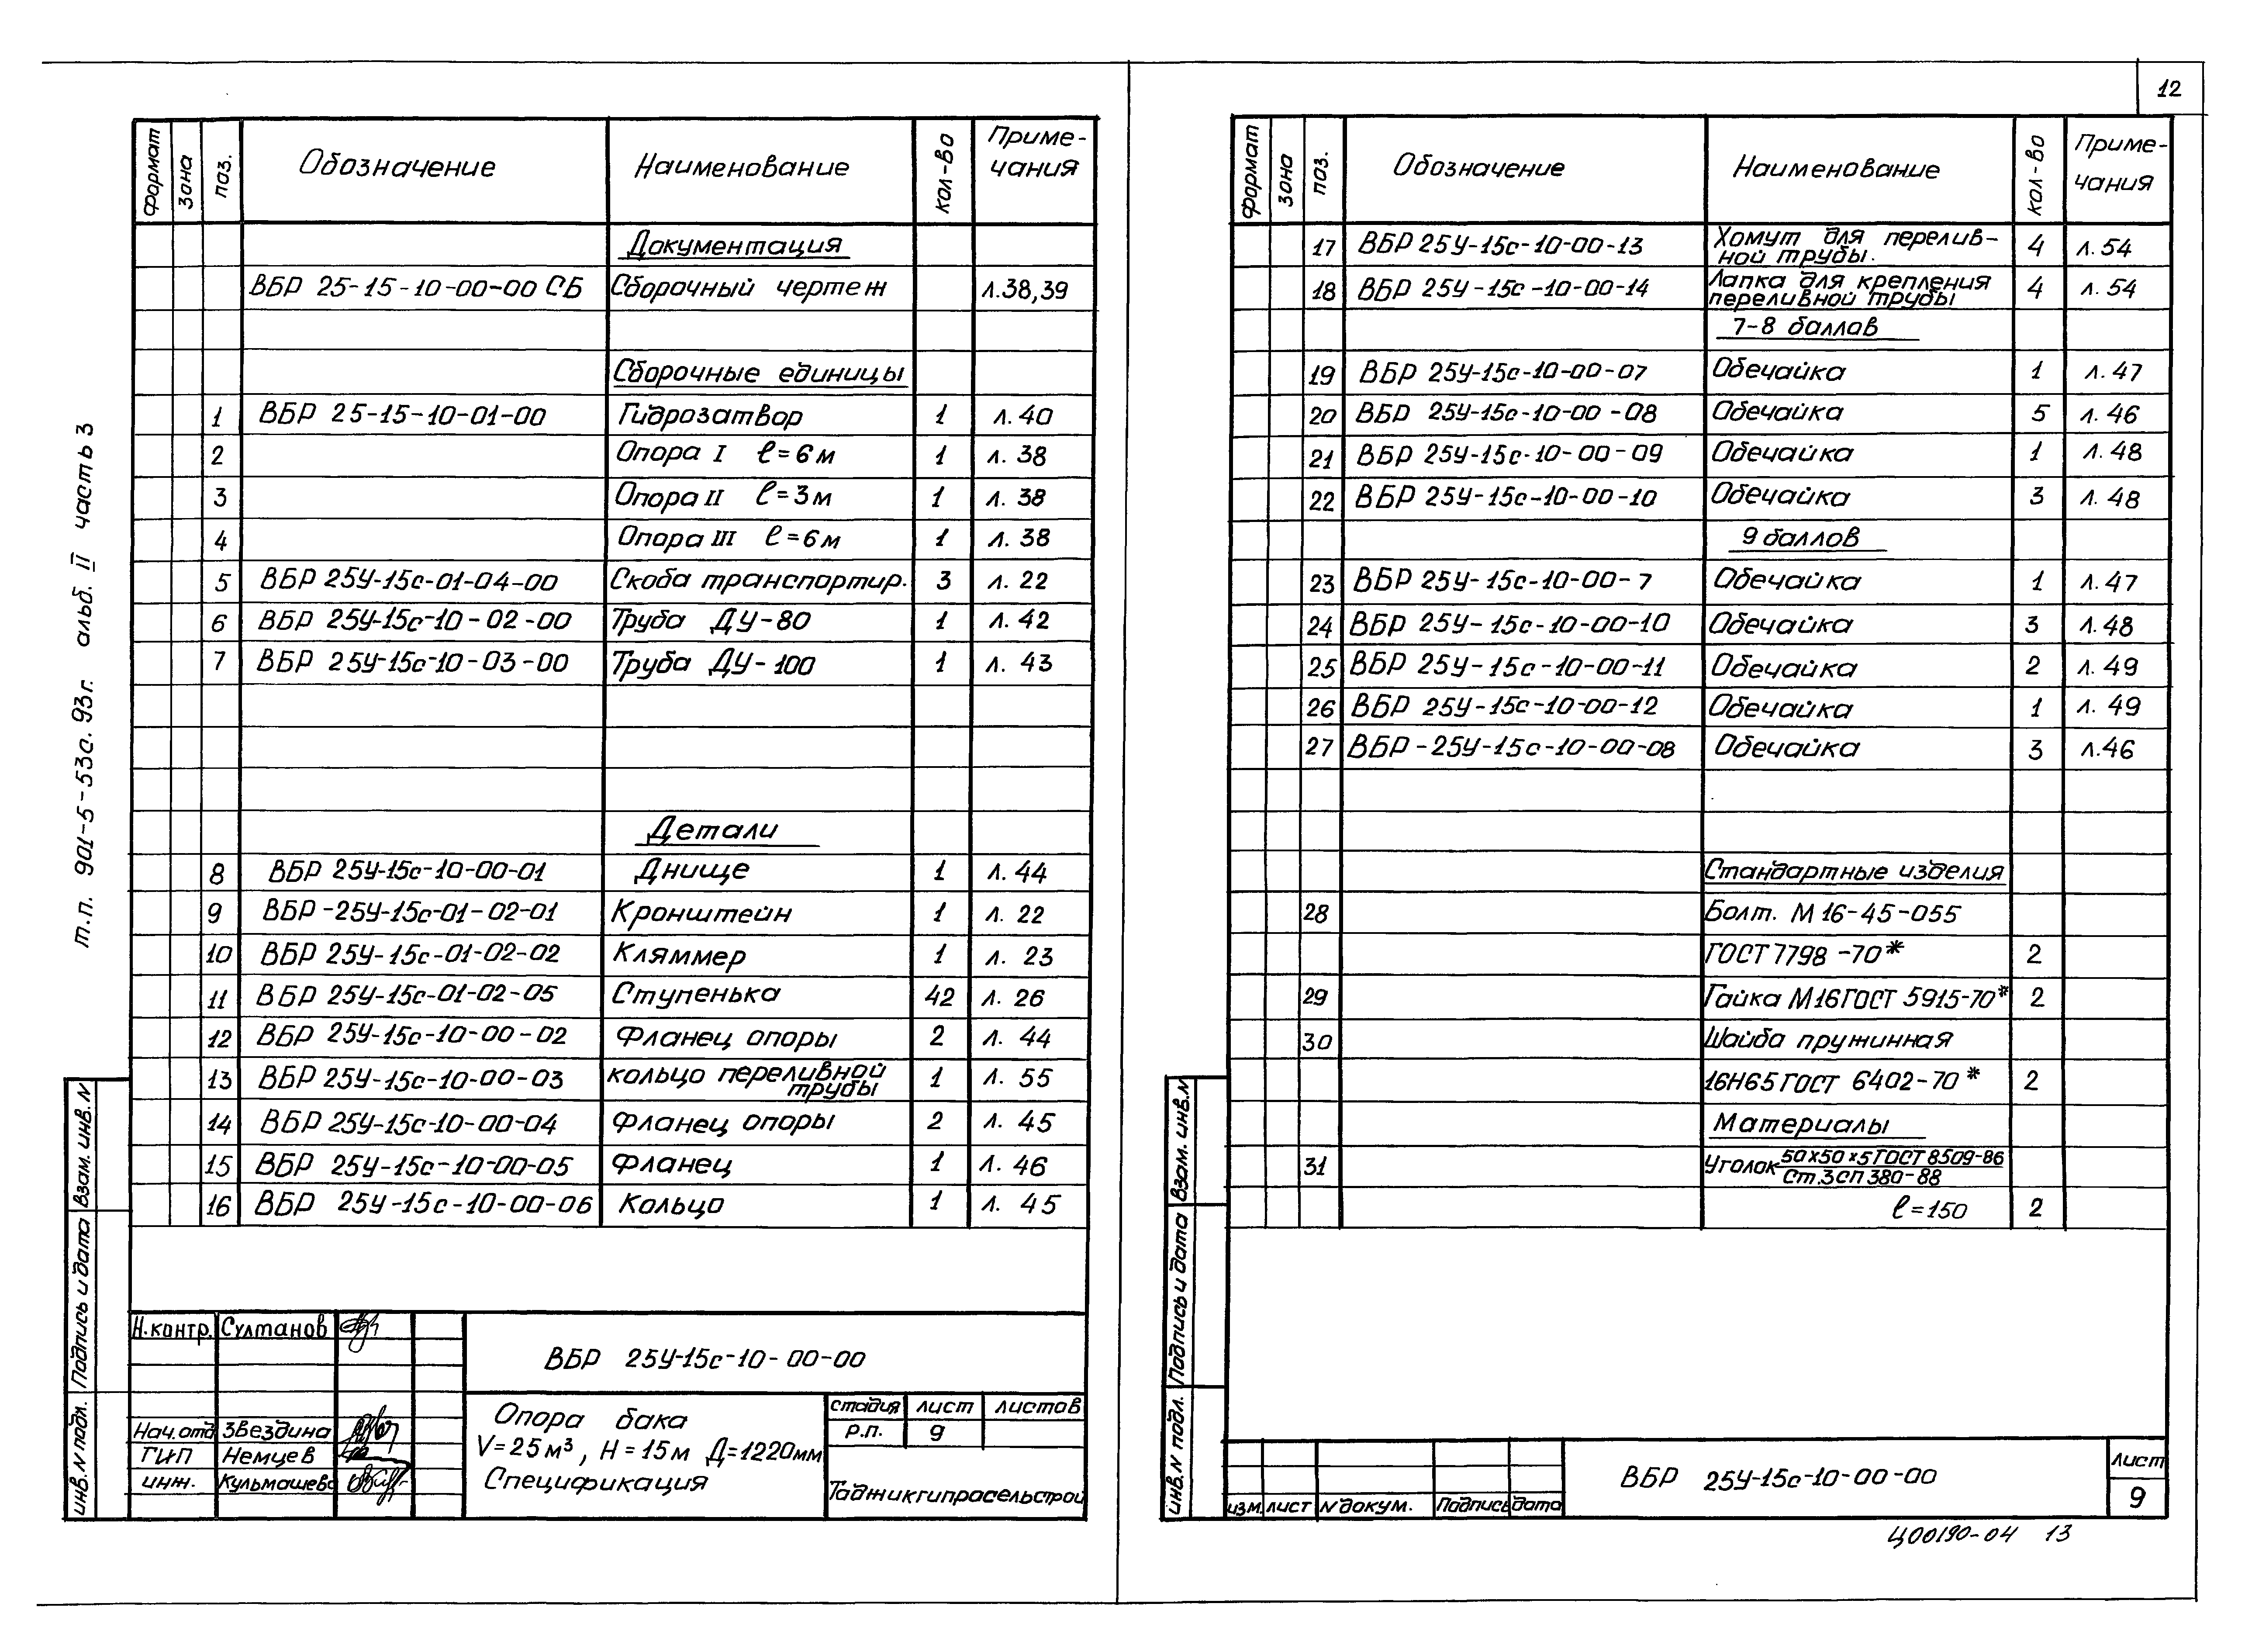 12
т.п. 901-5-53с.93г. альб. II часть 3
формат зона поз. Обозначение Наименование кол-во Приме-
чания
Документация
ВБР 25-15-10-00-00 СБ Сборочный чертеж л.38,39
Сборочные единицы
1 ВБР 25-15-10-01-00 Гидрозатвор 1 л.40
2 Опора I ℓ=6м 1 л. 38
3 Опора II ℓ=3м 1 л. 38
4 Опора III ℓ=6м 1 л. 38
5 ВБР 25У-15с-01-04-00 Скоба транспортир. 3 л. 22
6 ВБР 25У-15с-10-02-00 Труба ДУ-80 1 л. 42
7 ВБР 25У-15с-10-03-00 Труба ДУ-100 1 л. 43
Детали
8 ВБР 25У-15с-10-00-01 Днище 1 л.44
9 ВБР-25У-15с-01-02-01 Кронштейн 1 л. 22
10 ВБР 25У-15с-01-02-02 Кляммер 1 л. 23
11 ВБР 25У-15с-01-02-05 Ступенька 42 л. 26
12 ВБР 25У-15с-10-00-02 Фланец опоры 2 л. 44
13 ВБР 25У-15с-10-00-03 кольцо переливной
трубы 1 л. 55
14 ВБР 25У-15с-10-00-04 Фланец опоры 2 л. 45
15 ВБР 25У-15с-10-00-05 Фланец 1 л. 46
16 ВБР 25У-15с-10-00-06 Кольцо 1 л. 45
Взам. инв. N
Подпись и дата
инв. N подл.
Н.контр. Султанов
Нач.отд Звездина
ГИП Немцев
инж. Кульмашева
ВБР 25У-15с-10-00-00
Опора бака
V=25м³, Н=15м Д=1220мм
Спецификация
стадия лист листов
Р.П. 9
Таджикгипросельстрой
формат зона поз. Обозначение Наименование кол-во Приме-
чания
17 ВБР 25У-15с-10-00-13 Хомут для перелив-
ной трубы. 4 л.54
18 ВБР 25У-15с-10-00-14 Лапка для крепления
переливной трубы 4 л. 54
7-8 баллов
19 ВБР 25У-15с-10-00-07 Обечайка 1 л. 47
20 ВБР 25У-15с-10-00-08 Обечайка 5 л. 46
21 ВБР 25У-15с-10-00-09 Обечайка 1 л. 48
22 ВБР 25У-15с-10-00-10 Обечайка 3 л. 48
9 баллов
23 ВБР 25У-15с-10-00-7 Обечайка 1 л.47
24 ВБР 25У-15с-10-00-10 Обечайка 3 л.48
25 ВБР 25У-15с-10-00-11 Обечайка 2 л.49
26 ВБР 25У-15с-10-00-12 Обечайка 1 л. 49
27 ВБР-25У-15с-10-00-08 Обечайка 3 л.46
Стандартные изделия
28 Болт. М16-45-055
ГОСТ 7798-70* 2
29 Гайка М16 ГОСТ 5915-70* 2
30 Шайба пружинная
16Н65 ГОСТ 6402-70* 2
Материалы
31 Уголок 50х50х5 ГОСТ 8509-86
Ст.3сп 380-88
ℓ=150 2
Взам. инв. N
Подпись и дата
инв. N подл.
изм. лист N докум. Подпись дата
ВБР 25У-15с-10-00-00
Лист
9
Ц00190-04 13